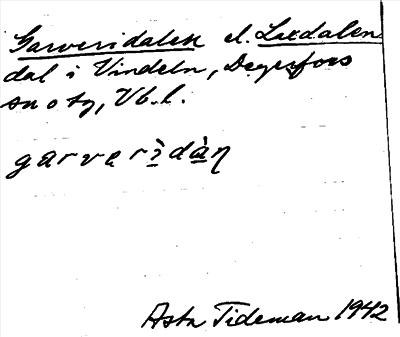 Garveridalen el. Lxdalen
dal i Vindeln, Degerfors
sn o tg, Vb. l.
garverìdàn
Asta Tideman 1942